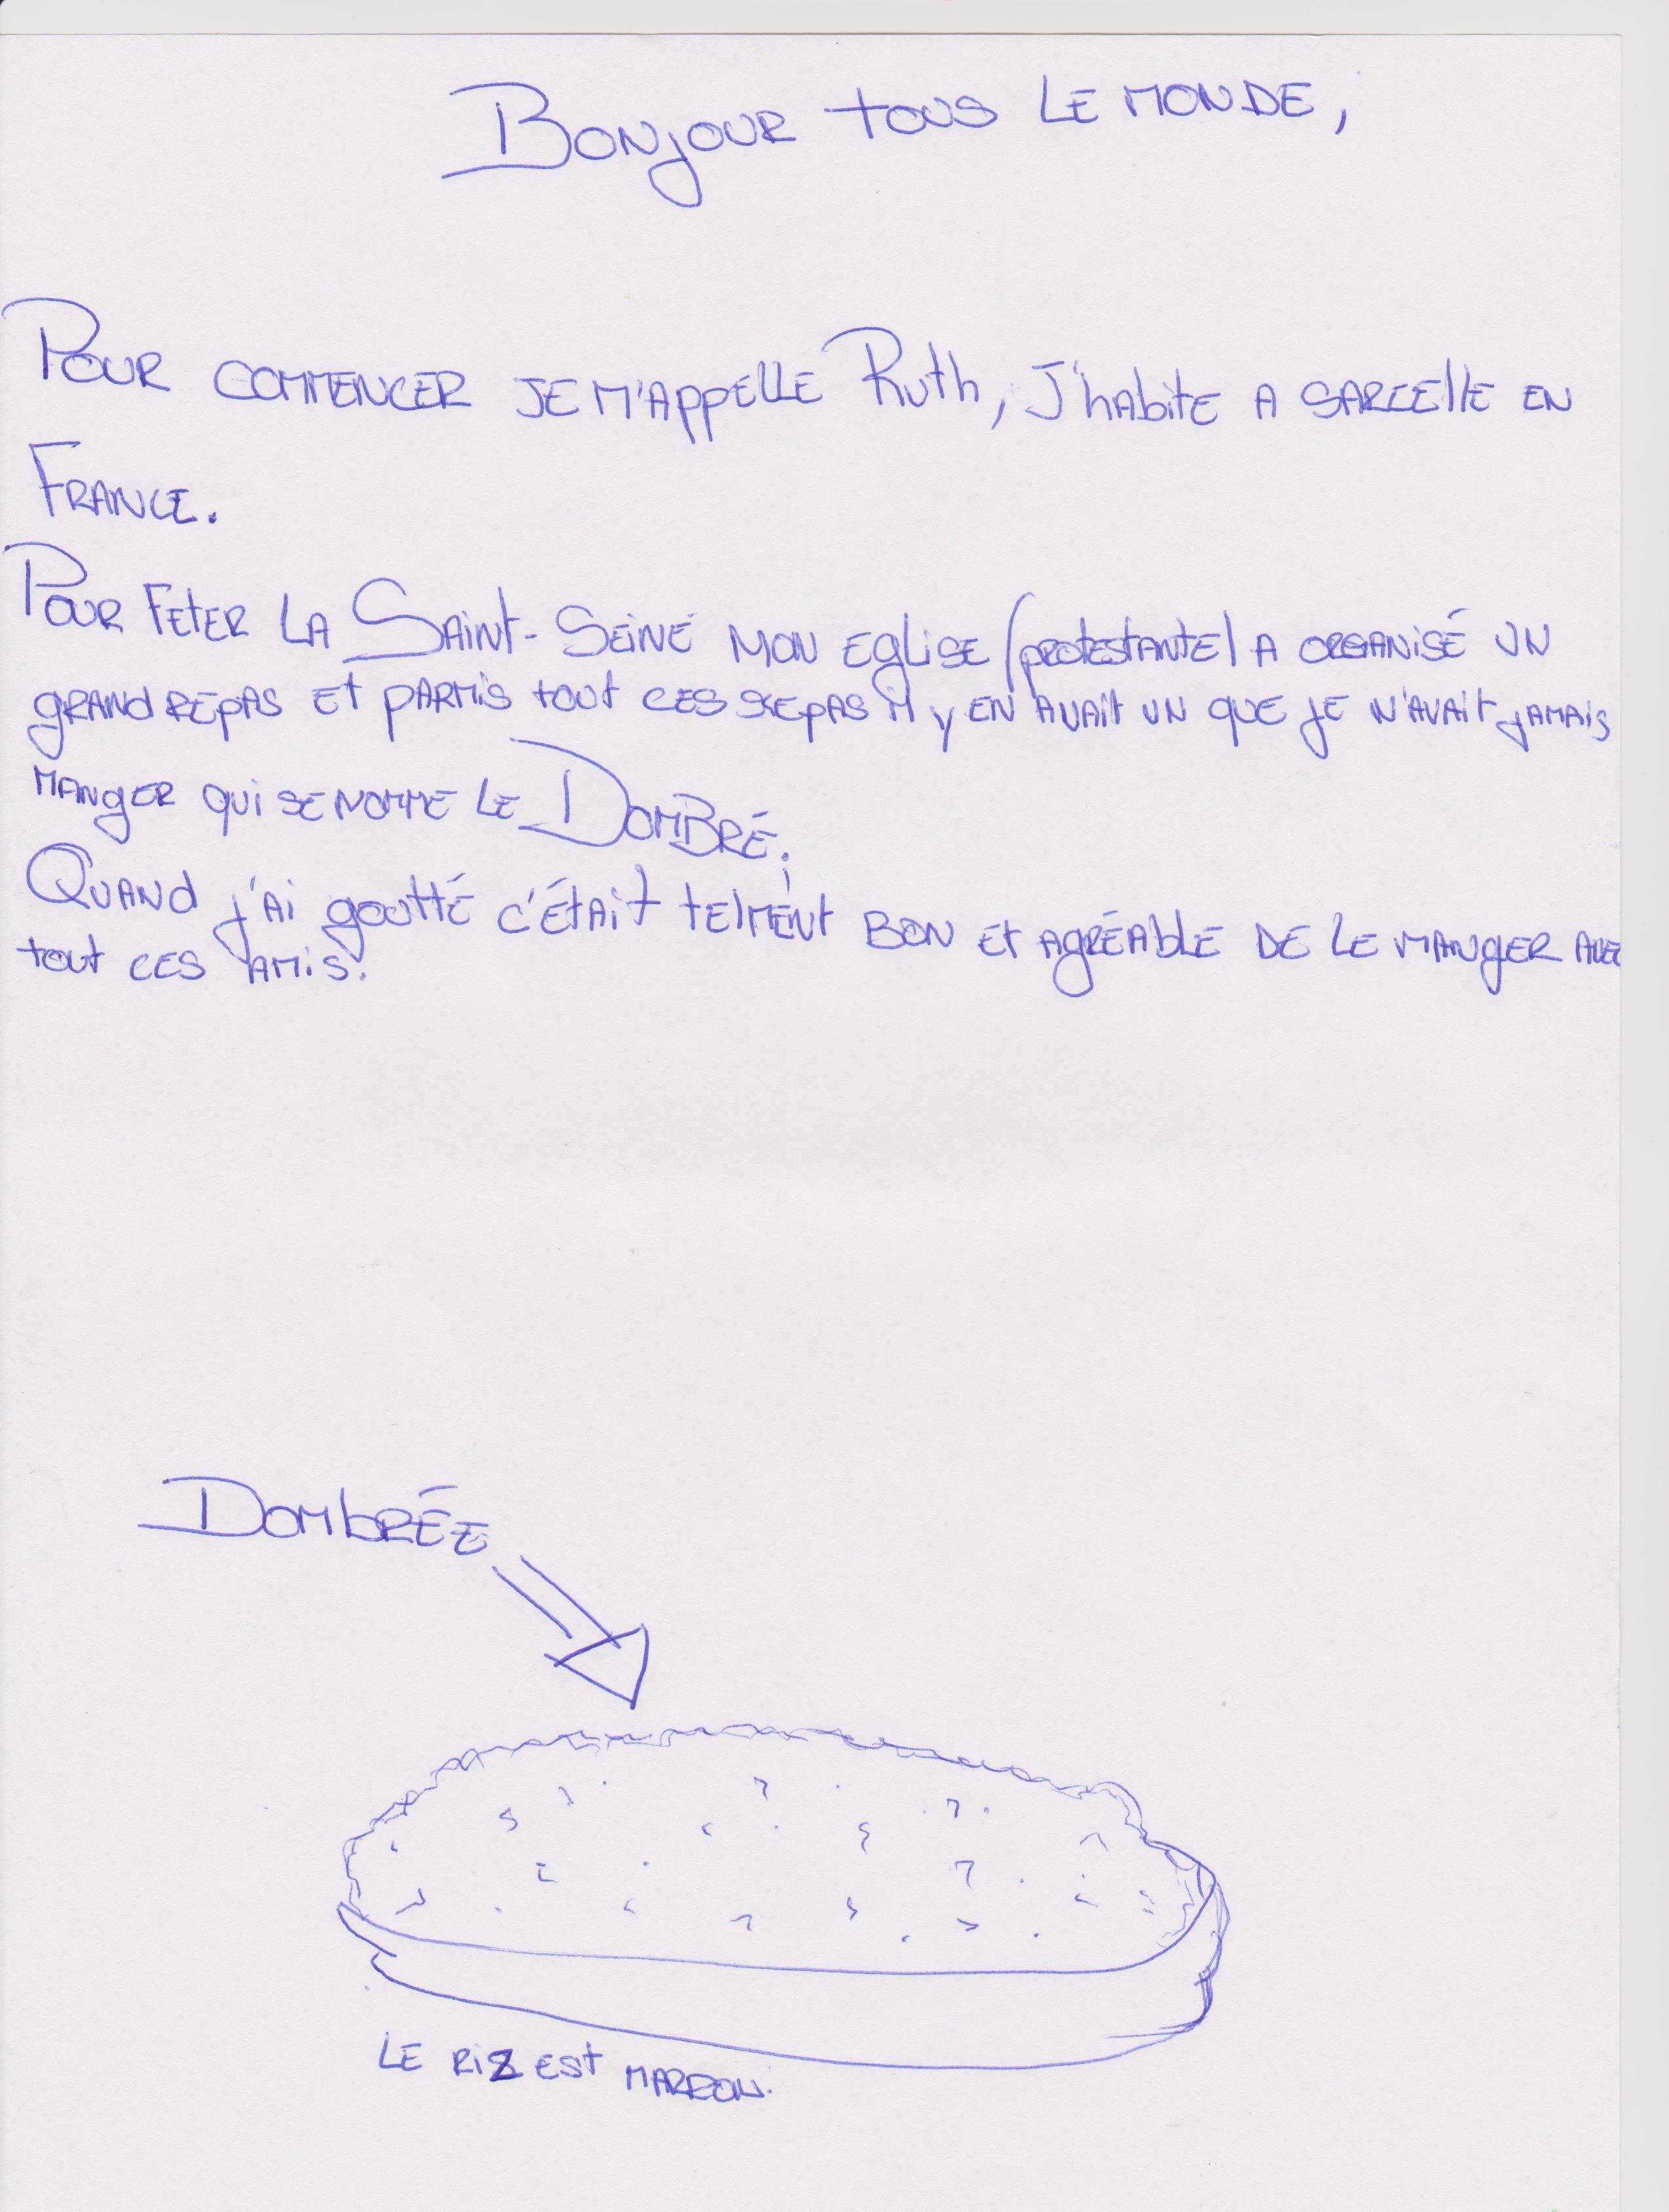 Bonjour tous le monde,
Pour commencer je m'appelle Ruth, J'habite a sarcelle en
France.
Pour feter la Saint-Seine mon eglise (protestante) a organisé un
grand repas et parmis tout ces repas il y en avait un que je n'avait jamais
manger qui se nomme le Dombré.
Quand j'ai goutté c'était telment bon et agréable de le manger avec
tout ces amis.
Dombrée
Le riz est marron.